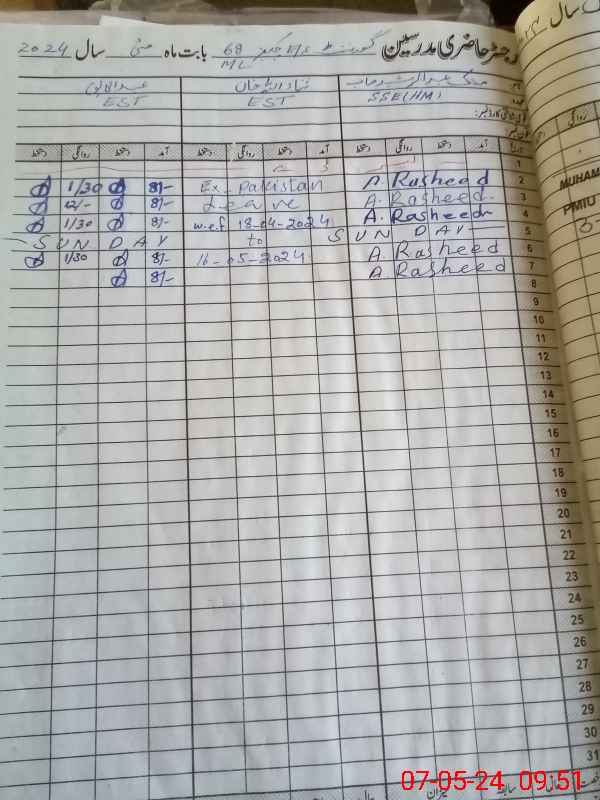 رجسٹر حاضری مدرسین گورنمنٹ M/S 68 بابت ماہ مئی سال 2024
M L
سال
SSE(HM)
EST
EST
تاریخ دستخط روانگی دستخط آمد دستخط روانگی دستخط آمد دستخط روانگی دستخط آمد
روانگی
1
2 A. Rasheed Ex-Pakistan 8/- 1/30
MUHAM
3 A. Rasheed Leave 8/- 12/-
PMIU
4 A. Rasheed w.e.f 18-04-2024 8/- 1/30
3-
5 SUN DAY to SUN DAY
6 A. Rasheed 16-05-2024 8/- 1/30
7 A. Rasheed 8/-
8
9
10
11
12
13
14
15
16
17
18
19
20
21
22
23
24
25
26
27
28
29
30
31
میزان سابقہ
07-05-24 09:51